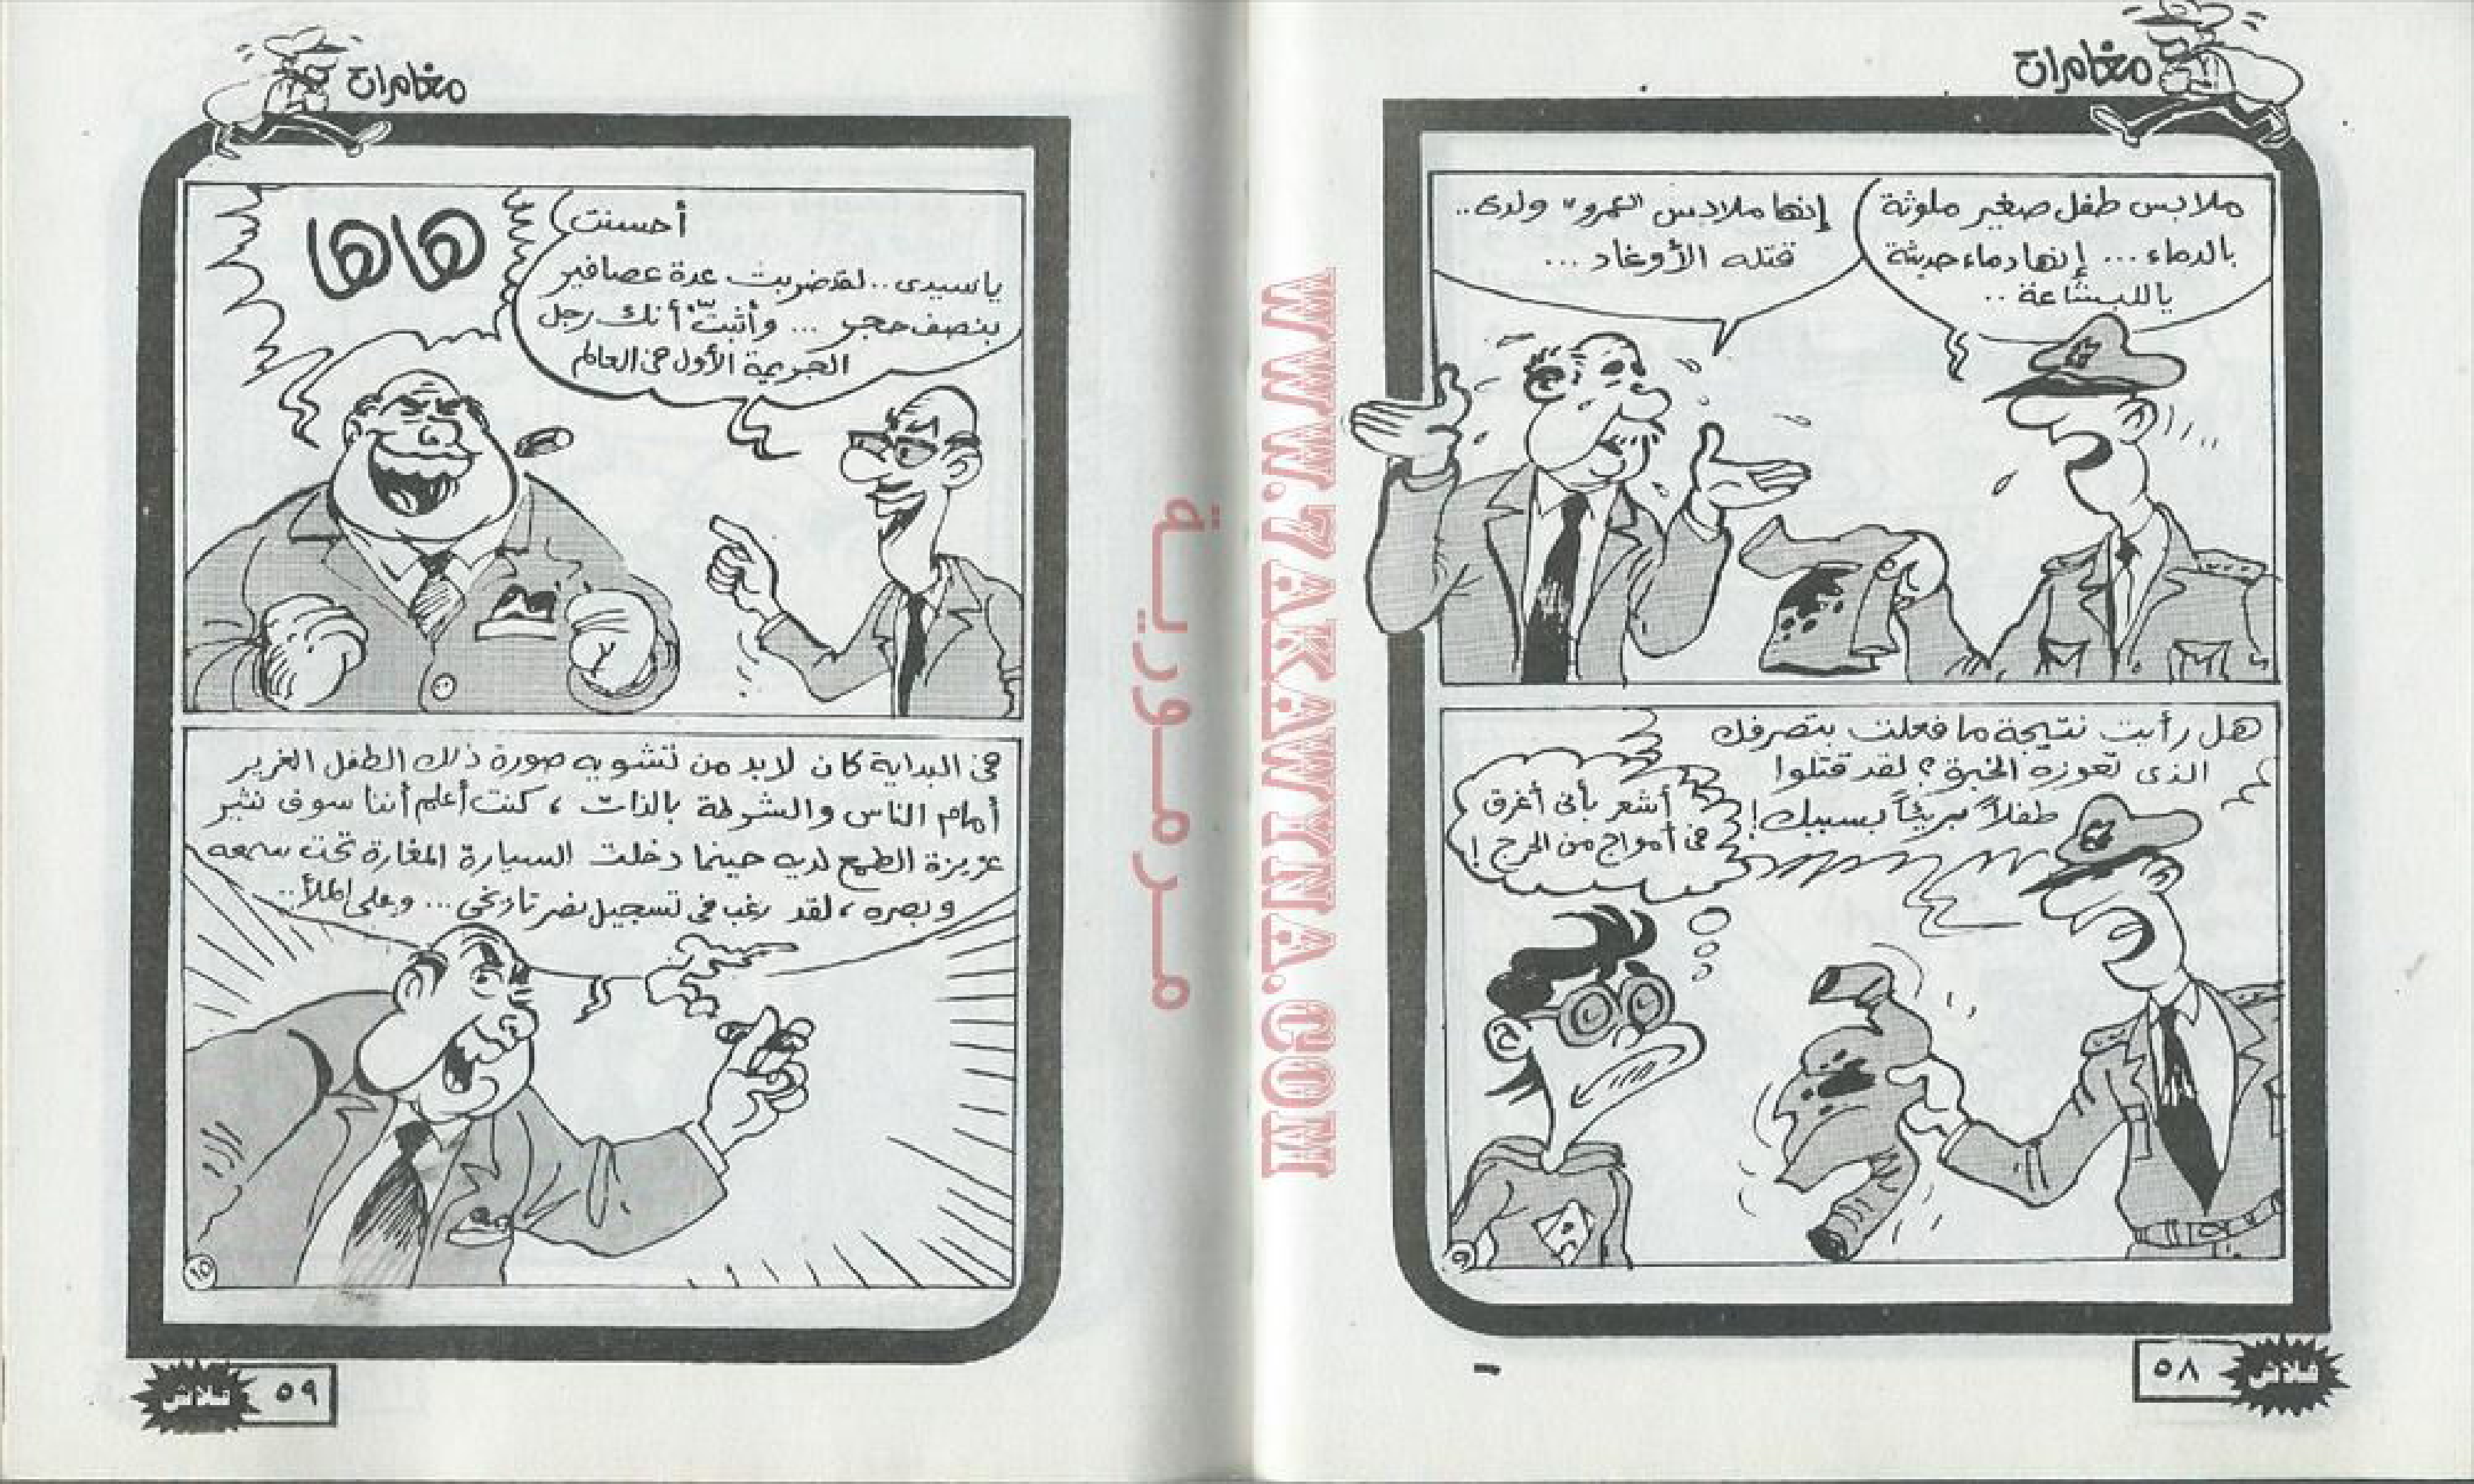 مغامرات
ملابس طفل صغير ملوثة
بالدماء... إنها دماء حديثة
ياللبشاعة..
إنها ملابس "عمرو" ولدى..
قتله الأوغاد...
هل رأيت نتيجة ما فعلت بتصرفك
الذى تعوزه الخبرة؟ لقد قتلوا
طفلاً بريئاً بسببك!
أشعر بأنى أغرق
فى أمواج من الحرج!
٩
٥٨
فلاش
مغامرات
أحسنت
ياسيدى.. لقد ضربت عدة عصافير
بنصف حجر... وأثبتّ أنك رجل
الجريمة الأول فى العالم
هاها
فى البداية كان لابد من تشويه صورة ذلك الطفل الغرير
أمام الناس والشرطة بالذات، كنت أعلم أننا سوف نثير
غريزة الطمع لديه حينما دخلت السيارة المغارة تحت سمعه
وبصره، لقد رغب فى تسجيل نصر تاريخى... وعلى الملأ..
١٥
٥٩
فلاش
WWW.7AKAWINA.COM
مرمورية